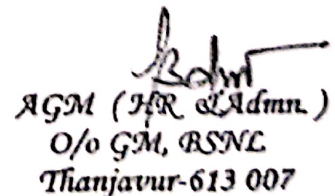 AGM (HR & Admn.)
O/o GM, BSNL
Thanjavur-613 007